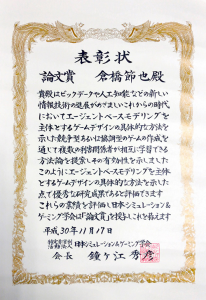 表彰状
論文賞 倉橋節也殿
貴殿はビックデータや人工知能などの新しい
情報技術の進展がめざましいこれからの時代
においてエージェントベースモデリングを
主体とするゲームデザインの具体的な方法を
示した競争型あるいは協調型のゲームの作成を
通して複数の利害関係者が相互に学習できる
方法論を提案しその有効性を示しました
このようにエージェントベースモデリングを主体
とするゲームデザインの具体的な方法を示した
点で優秀な研究成果であると評価できます
これらの業績を評価し日本シミュレーション&
ゲーミング学会は「論文賞」を授与しこれを称えます
平成30年11月17日
特定非営利活動法人 日本シミュレーション&ゲーミング学会
会長 鐘ヶ江秀彦